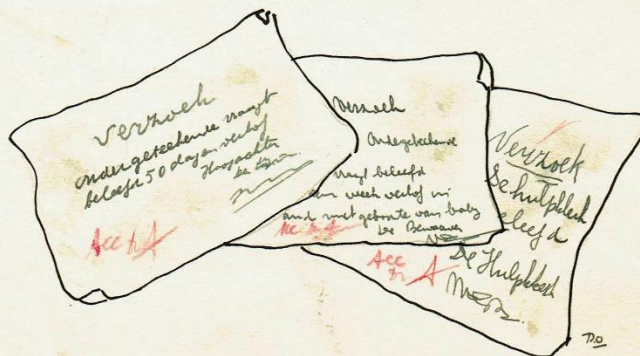 Verzoek
ondergeteekende vraagt
beleefd 50 dagen verlof
Hoogachten
Acc A
Verzoek
Ondergeteekende
vraagt beleefd
een week verlof in
verband met geboorte van baby
De Bewaarder
Verzoek
De hulpklerk
beleefd
De Hulpklerk
Acc Dr A
D.O